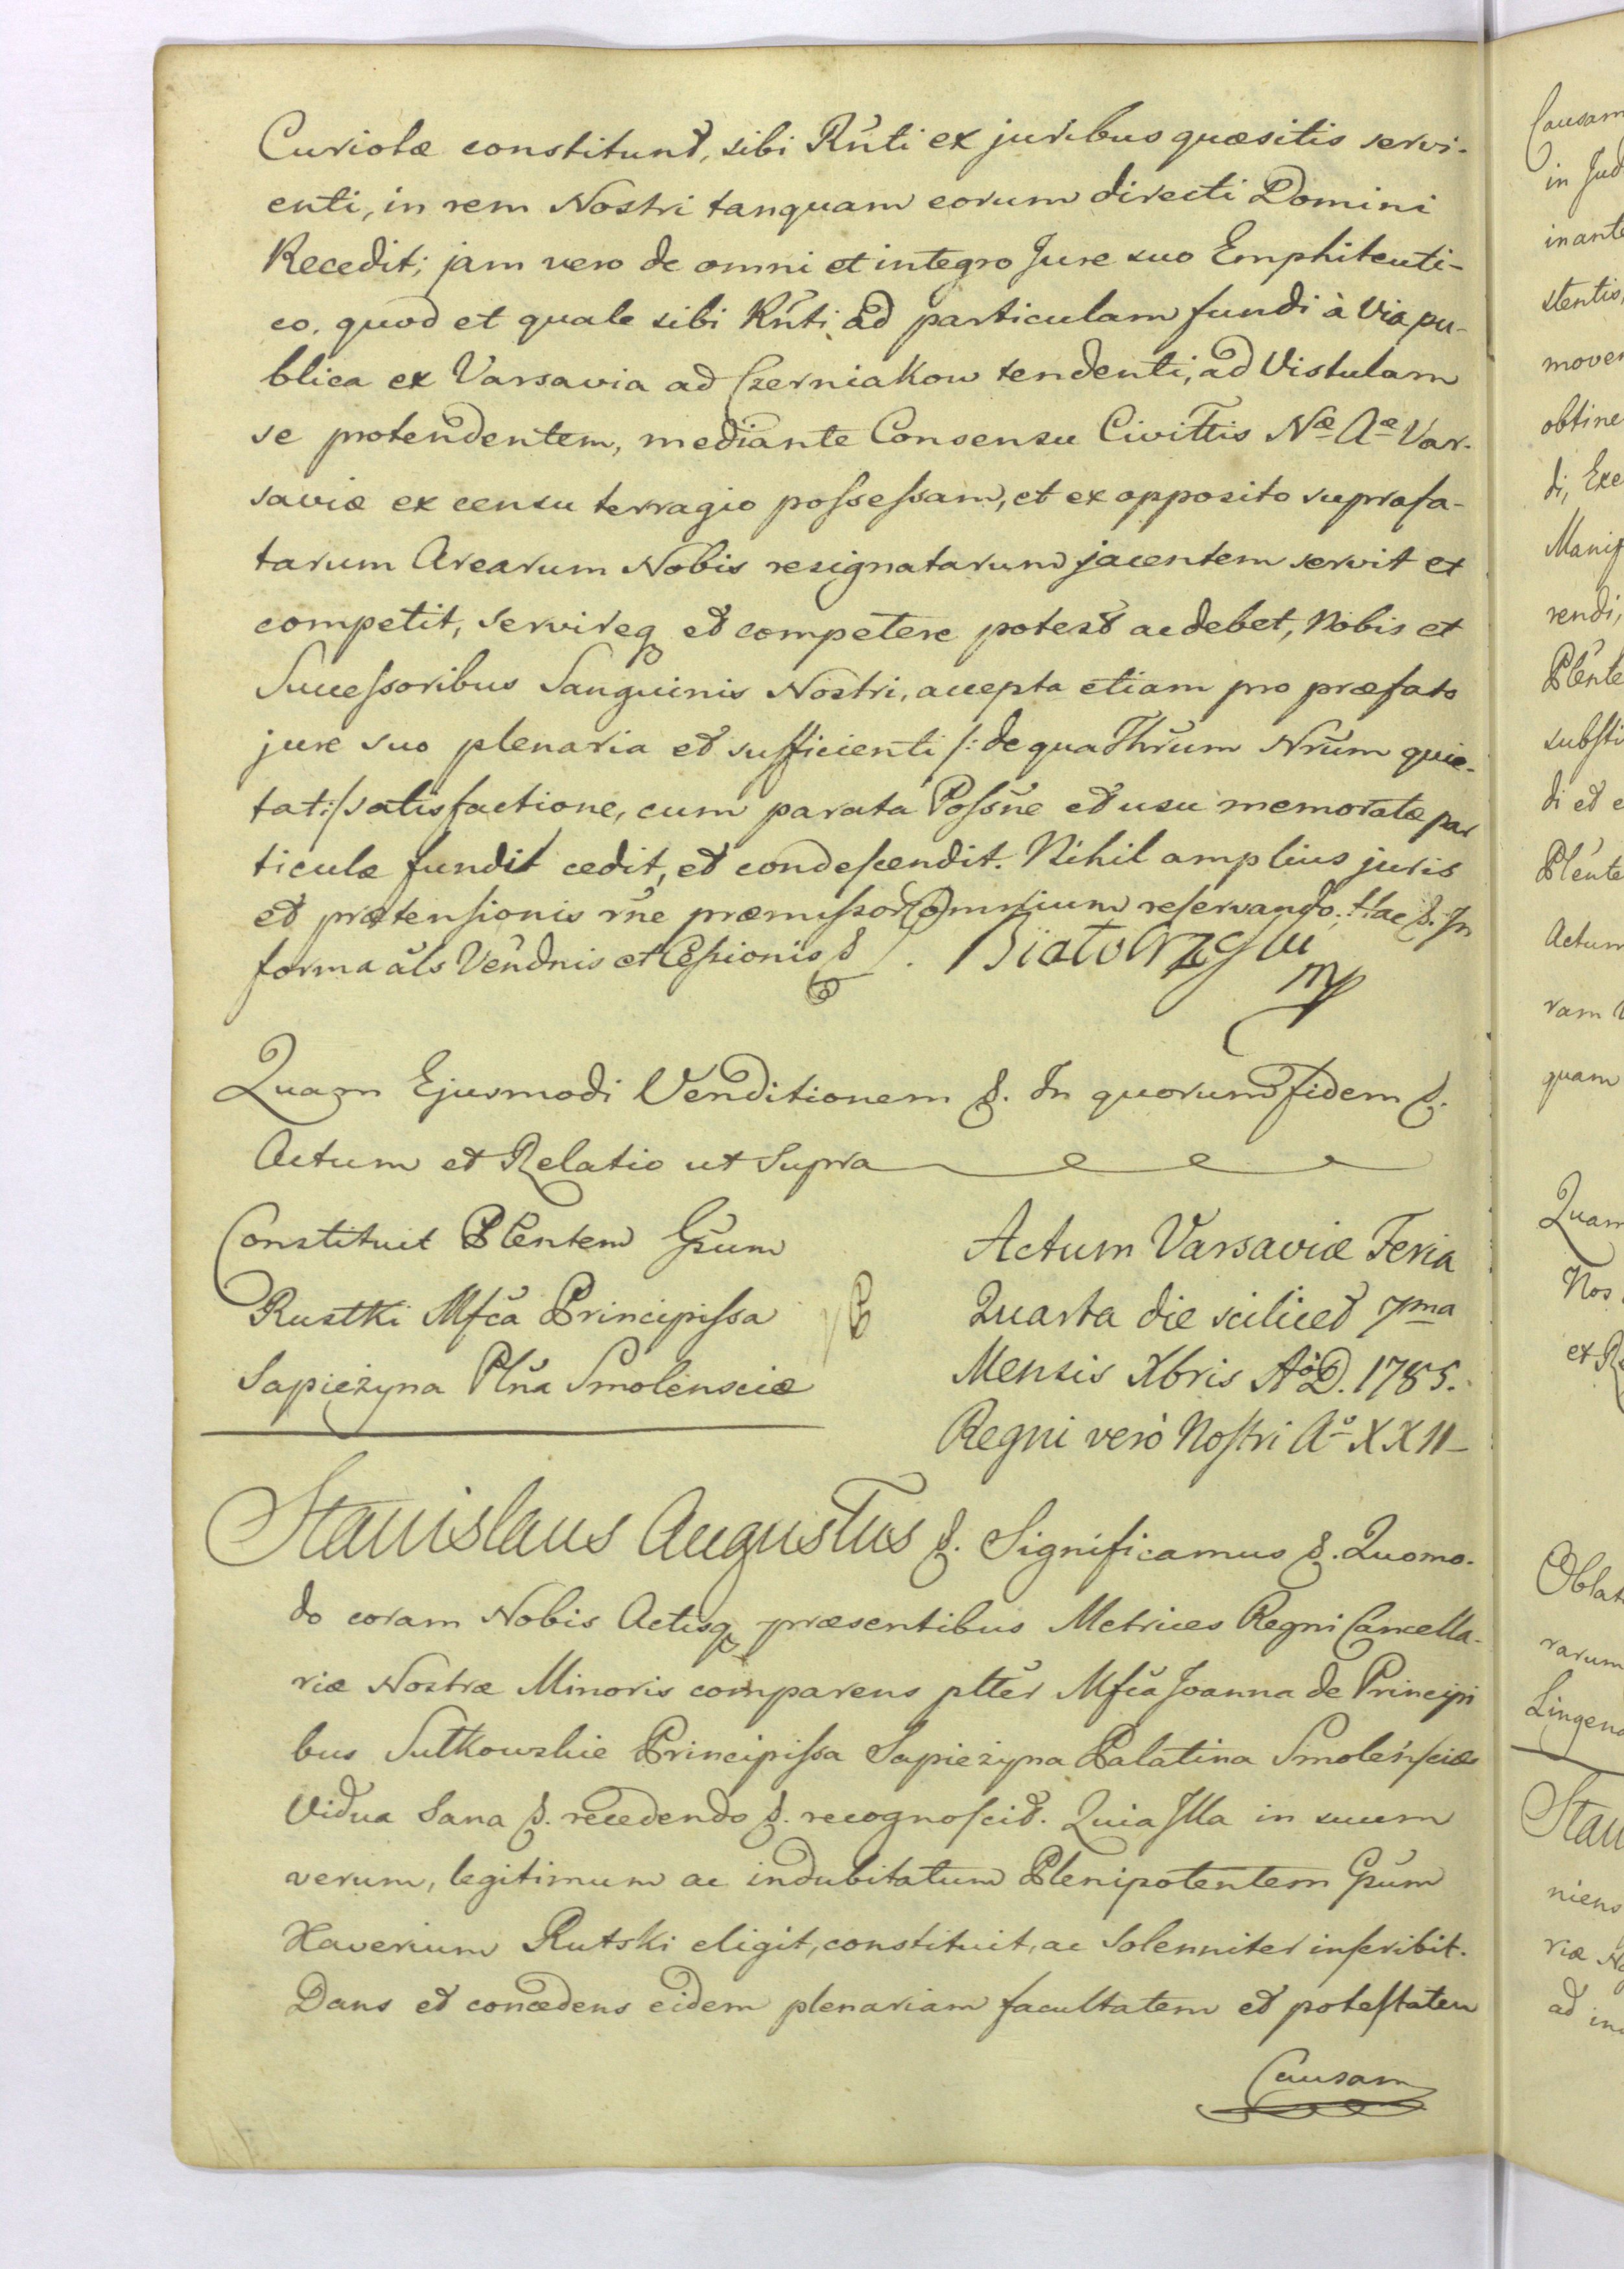 Curiolæ constitunt, sibi Rñti ex juribus quæsitis servi-
enti, in rem Nostri tanquam eorum directi Domini
Recedit; jam vero de omni et integro Jure suo Emphiteuti-
co, quod et quale sibi Rñti ad particulam fundi à Via pu-
blica ex Varsavia ad Czerniakow tendenti, ad Vistulam
se protendentem, mediante Consensu Civittis Næ Aæ Var-
saviæ ex censu terragio possessam, et ex opposito suprafa-
tarum Arearum Nobis resignatarum jacentem servit et
competit, servireq et competere potest ac debet, Nobis et
Successoribus Sanguinis Nostri, accepta etiam pro præfato
jure suo plenaria et sufficienti /: de qua Thrum Nrum quie-
tat:/ satisfactione, cum parata Possne et usu memoratæ par
ticulæ fundit cedit, et condescendit. Nihil amplius juris
et prætensionis rñe præmissor Omnium reservando. Hac &. In
forma als Vendnis et Cessionis &
mp
Quam Ejusmodi Venditionem &. In quorum fidem &.
Actum et Relatio ut Supra
Constituit Plentem Gsum
Rustki Mfca Principissa
Sapieżyna Plna Smolensciæ
Actum Varsaviæ Feria
Quarta die scilicet 7ma
Mensis Xbris AoD. 1785.
Regni verò Nostri Ao XXII
Stanislaus Augustus &. Significamus &. Quomo-
do coram Nobis Actisq præsentibus Metrices Regni Cancella-
riæ Nostræ Minoris comparens pltter Mfca Joanna de Principi
bus Sułkowskie Principissa Sapieżyna Palatina Smolensciæ
Vidua Sana &. recedendo &. recognoscit. Quia Illa in suum
verum, legitimum ac indubitatum Plenipotentem Gsum
Xaverium Rutski eligit, constituit, ac Solenniter inscribit.
Dans et concedens eidem plenariam facultatem et potestatem
Causam